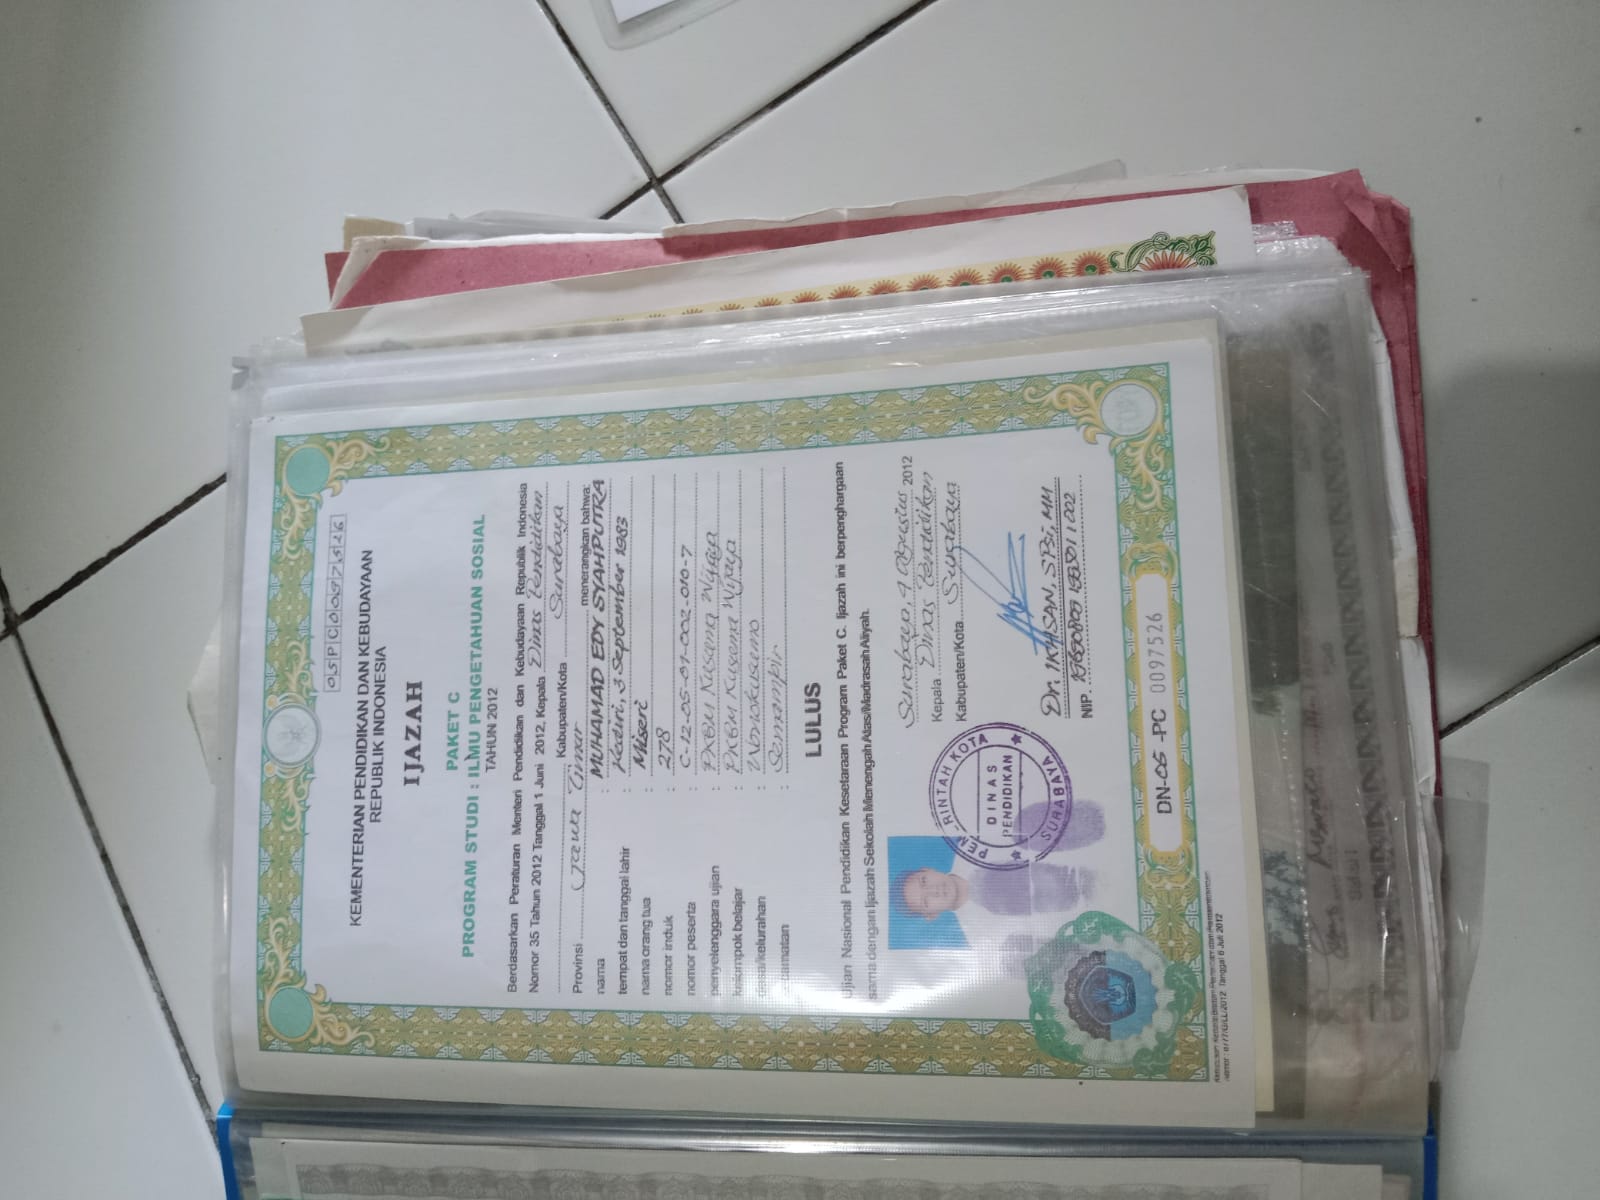 05PC0097526
KEMENTERIAN PENDIDIKAN DAN KEBUDAYAAN
REPUBLIK INDONESIA
IJAZAH
PAKET C
PROGRAM STUDI : ILMU PENGETAHUAN SOSIAL
TAHUN 2012
Berdasarkan Peraturan Menteri Pendidikan dan Kebudayaan Republik Indonesia
Nomor 35 Tahun 2012 Tanggal 1 Juni 2012, Kepala Dinas Pendidikan
Kabupaten/Kota Surabaya
Provinsi Jawa Timur menerangkan bahwa:
nama : MUHAMAD EDY SYAHPUTRA
tempat dan tanggal lahir : Kediri, 3 September 1983
nama orang tua : Miseri
nomor induk : 278
nomor peserta : C-12-05-01-002-010-7
penyelenggara ujian : PKBM Kusuma Wijaya
kelompok belajar : PKBM Kusuma Wijaya
desa/kelurahan : Wonokusumo
kecamatan : Semampir
LULUS
Ujian Nasional Pendidikan Kesetaraan Program Paket C. Ijazah ini berpenghargaan
sama dengan Ijazah Sekolah Menengah Atas/Madrasah Aliyah.
Surabaya, 4 Agustus 2012
Kepala Dinas Pendidikan
Kabupaten/Kota Surabaya
Dr. IKHSAN, S.Psi, MM
NIP.
PEMERINTAH KOTA
DINAS
PENDIDIKAN
SURABAYA
DN-05 -PC 0097526
Nomor : 0177/G/LL/2012 Tanggal 6 Juli 2012